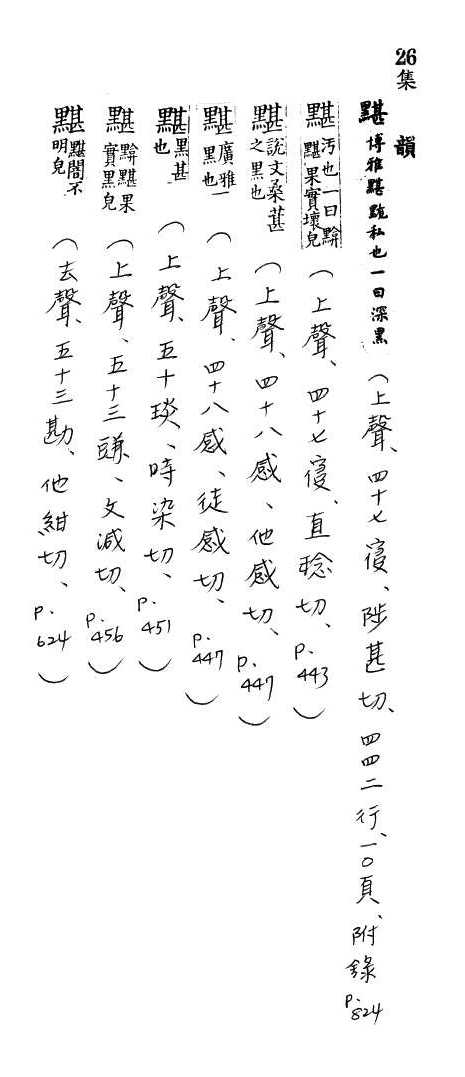 26
集韻
黮 博雅黮黕私也一曰深黑(上聲、四十七寑、陟甚切、四四二行、一〇頁、附錄p.824
黮 污也一曰黭黮果實壞皃(上聲、四十七寑、直稔切、p.443)
黮 說文桑葚之黑也(上聲、四十八感、他感切、p.447)
黮 廣雅黑也(上聲、四十八感、徒感切、p.447)
黮 黑甚也(上聲、五十琰、時染切、p.451)
黮 黭黮果實黑皃(上聲、五十三豏、丈減切、p.456)
黮 黮闇不明皃(去聲、五十三勘、他紺切、p.624)